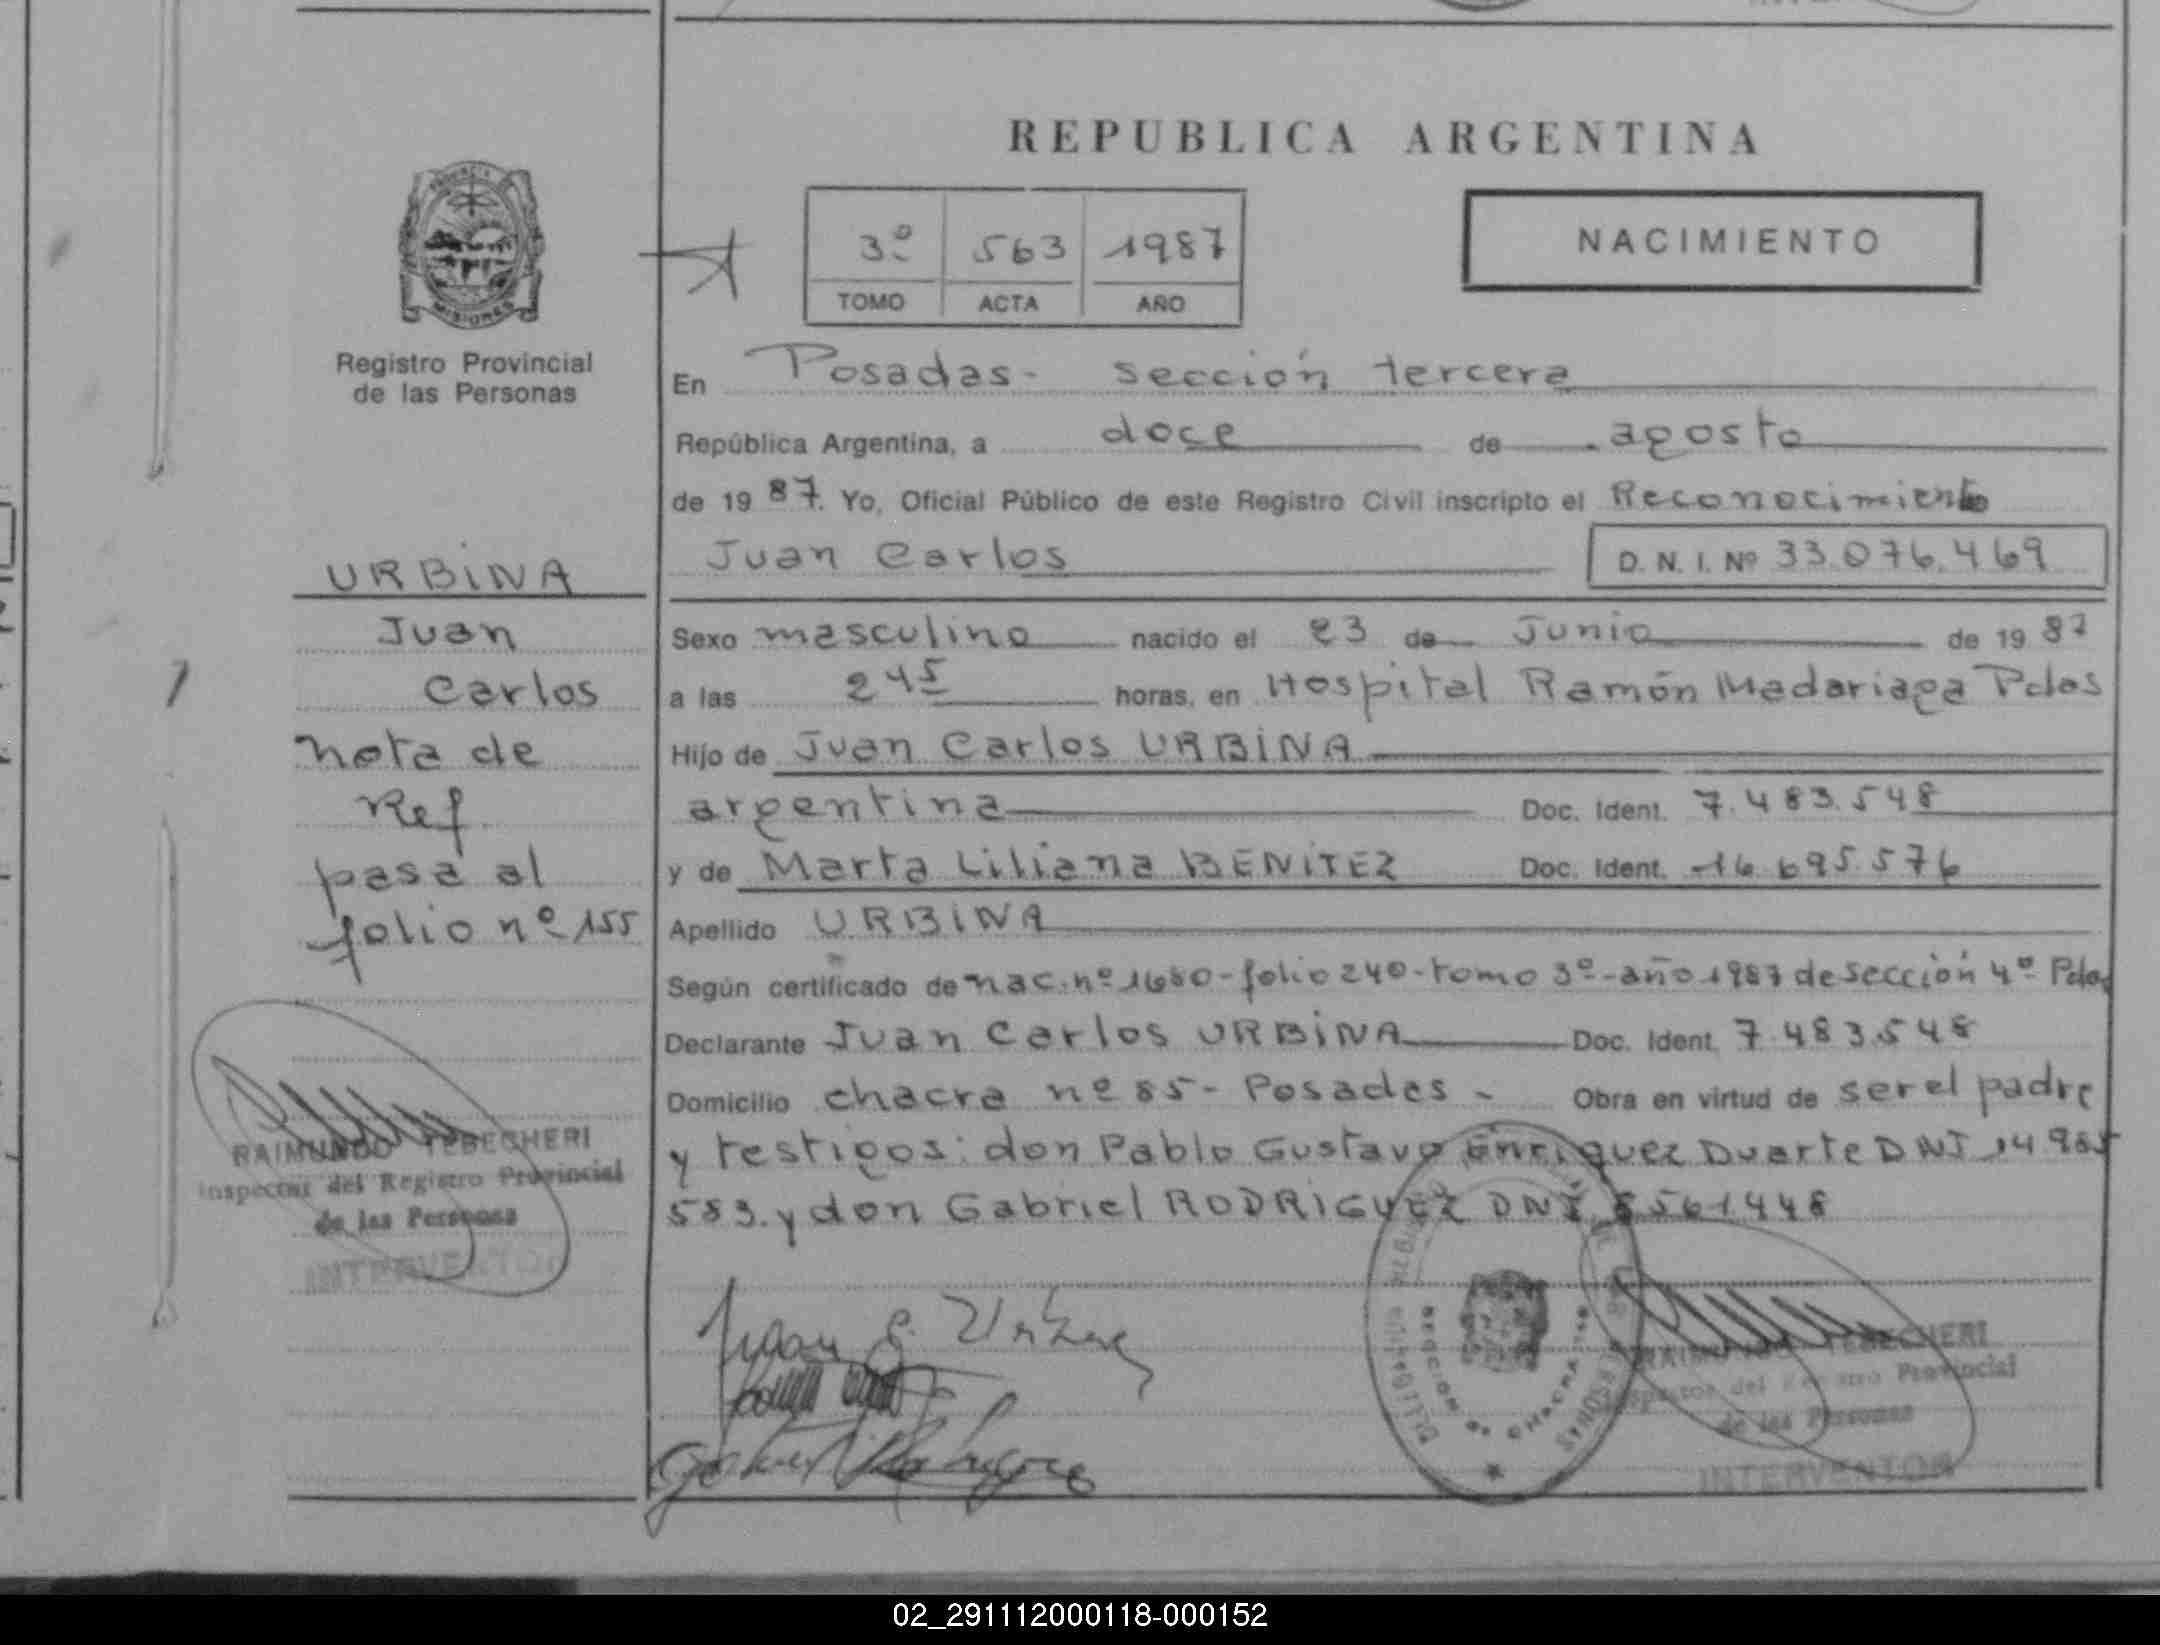 REPUBLICA ARGENTINA
PROVINCIA DE
MISIONES
Registro Provincial
de las Personas
3º 563 1987
TOMO ACTA AÑO
NACIMIENTO
En Posadas - sección tercera
República Argentina, a doce de agosto
de 1987. Yo, Oficial Público de este Registro Civil inscripto el Reconocimiento
Juan Carlos D. N. I. Nº 33.076.469
Sexo masculino nacido el 23 de Junio de 1987
a las 2 45 horas, en Hospital Ramón Madariaga Pdas
Hijo de Juan Carlos URBINA
argentina Doc. Ident. 7.483.548
y de Marta Liliana BENITEZ Doc. Ident. 16.695.576
Apellido URBINA
Según certificado de nac. nº 1680 - folio 240 - tomo 3º - año 1987 de sección 4º Pdas
Declarante Juan Carlos URBINA Doc. Ident. 7.483.548
Domicilio chacra nº 85 - Posadas - Obra en virtud de ser el padre
y testigos: don Pablo Gustavo Enriquez Duarte DNI 14 985
583. y don Gabriel RODRIGUEZ DNI 8561448
URBINA
Juan
Carlos
nota de
Ref.
pasa al
folio nº 155
RAIMUNDO TEBECHERI
Inspector del Registro Provincial
de las Personas
INTERVENTOR
Juan C. Urbina
SECCION 3ª CHACRA
RAIMUNDO TEBECHERI
Inspector del Registro Provincial
de las Personas
INTERVENTOR
02_291112000118-000152